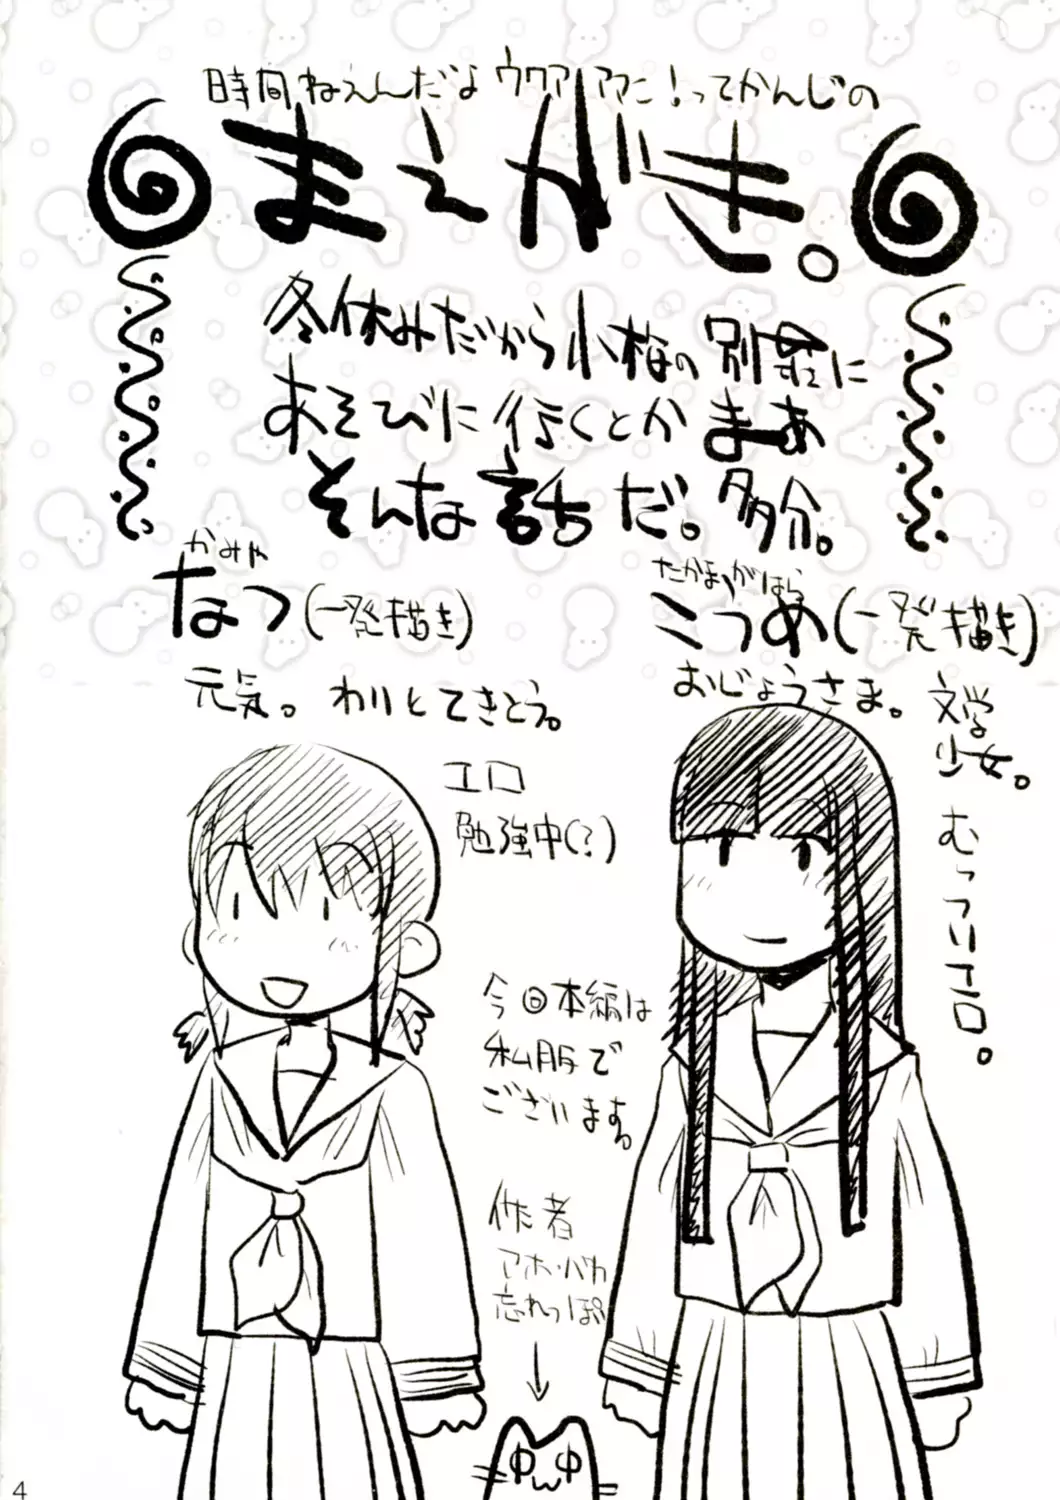 時間ねえんだよウワアアアン！ってかんじの
まえがき。
冬休みだから小梅の別荘に
あそびに行くとかまあ
そんな話だ。多分。
かみや
なつ(一発描き)
元気。わりとてきとう。
エロ
勉強中(？)
たかまがはら
こうめ(一発描き)
おじょうさま。文学
少女。
むっつりエロ。
今回本編は
私服で
ございます。
作者
アホ・バカ
忘れっぽい
4